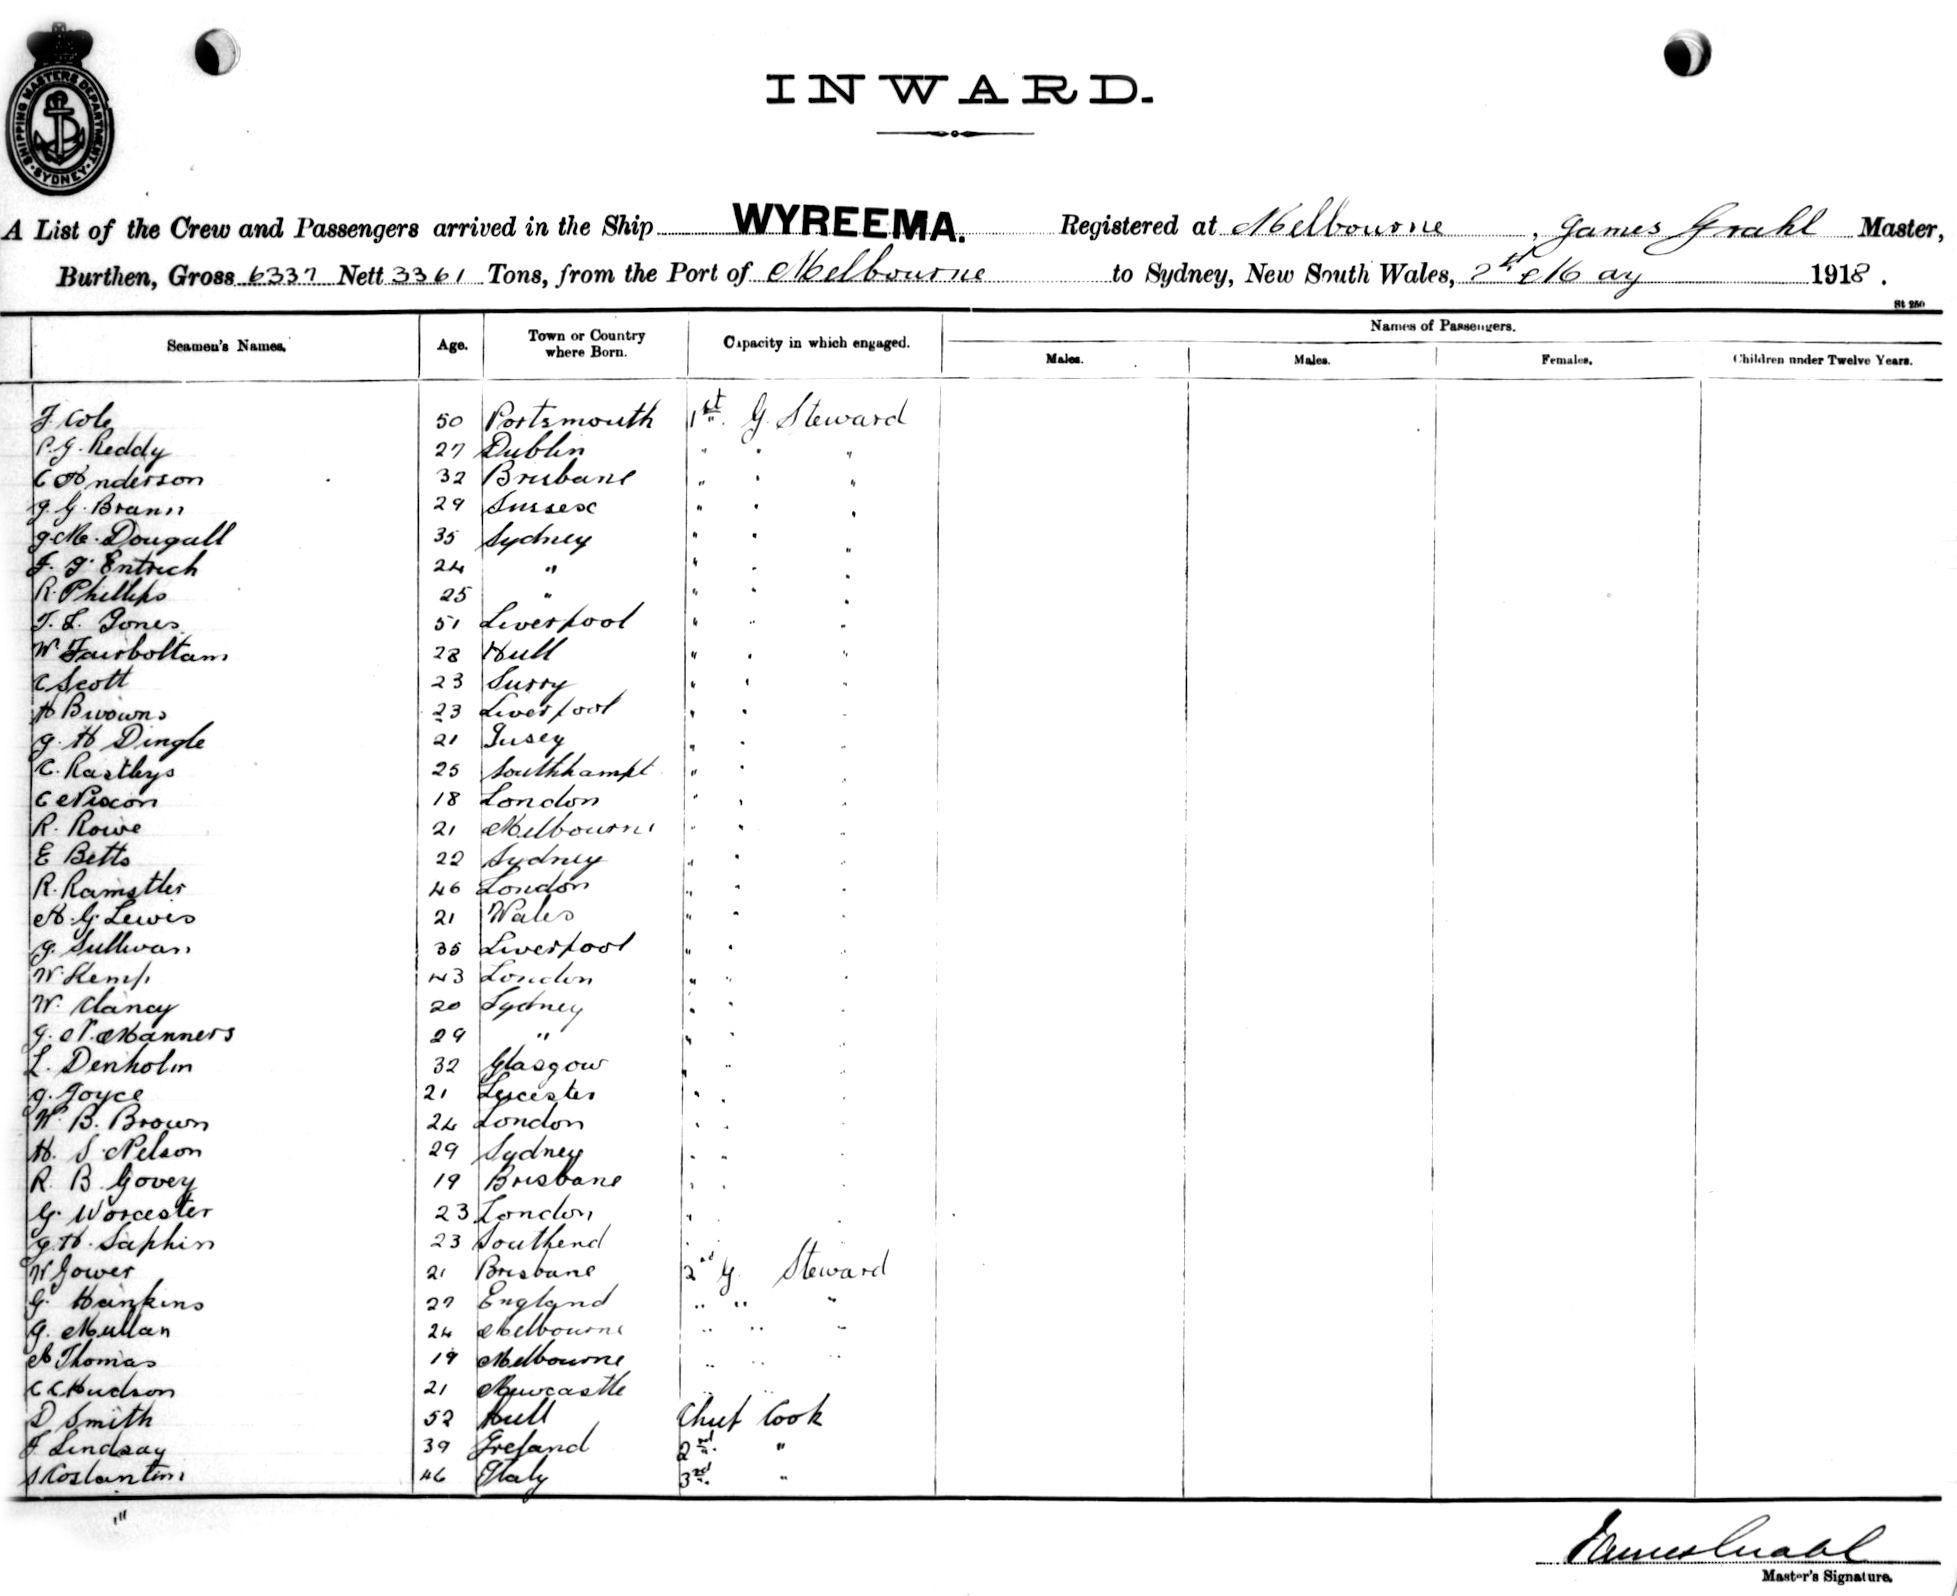 SHIPPING MASTERS DEPARTMENT SYDNEY
INWARD.
A List of the Crew and Passengers arrived in the Ship WYREEMA. Registered at Melbourne, James Grahl Master,
Burthen, Gross 6337 Nett 3361 Tons, from the Port of Melbourne to Sydney, New South Wales, 2nd May 1918.
St 250
Seamen's Names. Age. Town or Country where Born. Capacity in which engaged. Names of Passengers.
Males. Males. Females. Children under Twelve Years.
F Cole 50 Portsmouth 1st. G. Steward
P. J. Reddy 27 Dublin " " "
C Anderson 32 Brisbane " " "
J. G. Brann 29 Sussex " " "
J. Mc. Dougall 35 Sydney " " "
F. J. Entrich 24 " " " "
R. Phillips 25 " " " "
T. L. Jones 51 Liverpool " " "
W. Fairbottam 28 Hull " " "
C Scott 23 Surry " " "
H Browns 23 Liverpool " " "
J. H Dingle 21 " " "
C. Rastleys 25 Southhampt " " "
C Nixon 18 London " " "
R. Rowe 21 Melbourne " " "
E Betts 22 Sydney " " "
R. Ramstler 46 London " " "
A. G. Lewis 21 Wales " " "
J. Sullivan 35 Liverpool " " "
W. Kemp 43 London " " "
W. Clancy 20 Sydney " " "
J. N. Manners 29 " " " "
L. Denholm 32 Glasgow " " "
J. Joyce 21 Leicester " " "
W. B. Brown 24 London " " "
H. S. Nelson 29 Sydney " " "
R. B. Govey 19 Brisbane " " "
G. Worcester 23 London " " "
J. H. Saphin 23 Southend " " "
W Gower 21 Brisbane 2nd G Steward
G. Hankins 27 England " " "
J. Mullan 24 Melbourne " " "
A Thomas 19 Melbourne " " "
C C Hudson 21 Newcastle " "
D Smith 52 Hull Chief Cook
F Lindsay 39 Ireland 2nd. "
S Costantini 46 Italy 3rd. "
James Grahl
Master's Signature.